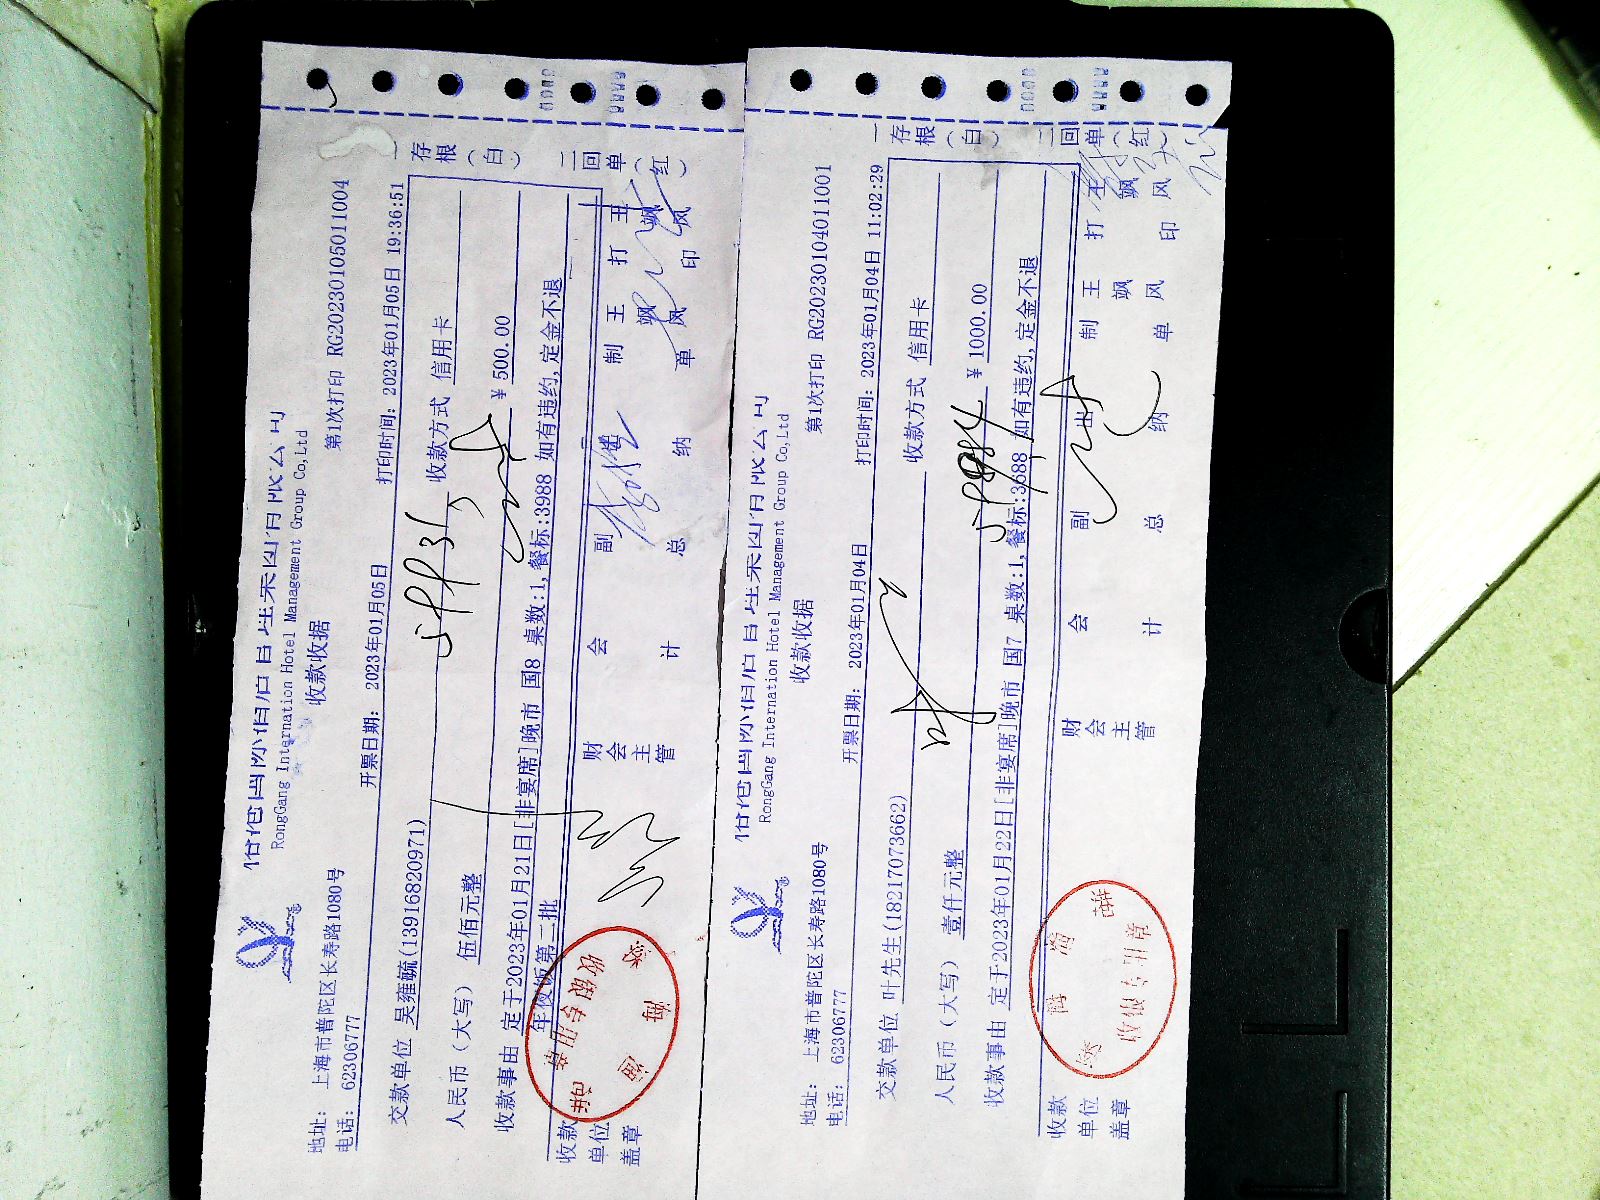 RongGang Internation Hotel Management Group Co,Ltd
收款收据
地址: 上海市普陀区长寿路1080号
电话: 62306777
第1次打印 RG20230105011004
开票日期: 2023年01月05日
打印时间: 2023年01月05日 19:36:51
交款单位 吴雍毓(13916820971)
收款方式 信用卡
人民币（大写） 伍佰元整
¥ 500.00
收款事由 定于2023年01月21日[非宴席]晚市 国8 桌数:1,餐标:3988 如有违约,定金不退
年夜饭第二批
收款单位盖章
财会主管
会计
副总
纳
制单 王飒风
打印 王飒风
一存根（白）
二回单（红）
收银专用章
RongGang Internation Hotel Management Group Co,Ltd
收款收据
地址: 上海市普陀区长寿路1080号
电话: 62306777
第1次打印 RG20230104011001
开票日期: 2023年01月04日
打印时间: 2023年01月04日 11:02:29
交款单位 叶先生(18217073662)
收款方式 信用卡
人民币（大写） 壹仟元整
¥ 1000.00
收款事由 定于2023年01月22日[非宴席]晚市 国7 桌数:1,餐标:3688 如有违约,定金不退
收款单位盖章
财会主管
会计
副总
出纳
制单 王飒风
打印 王飒风
一存根（白）
二回单（红）
收银专用章